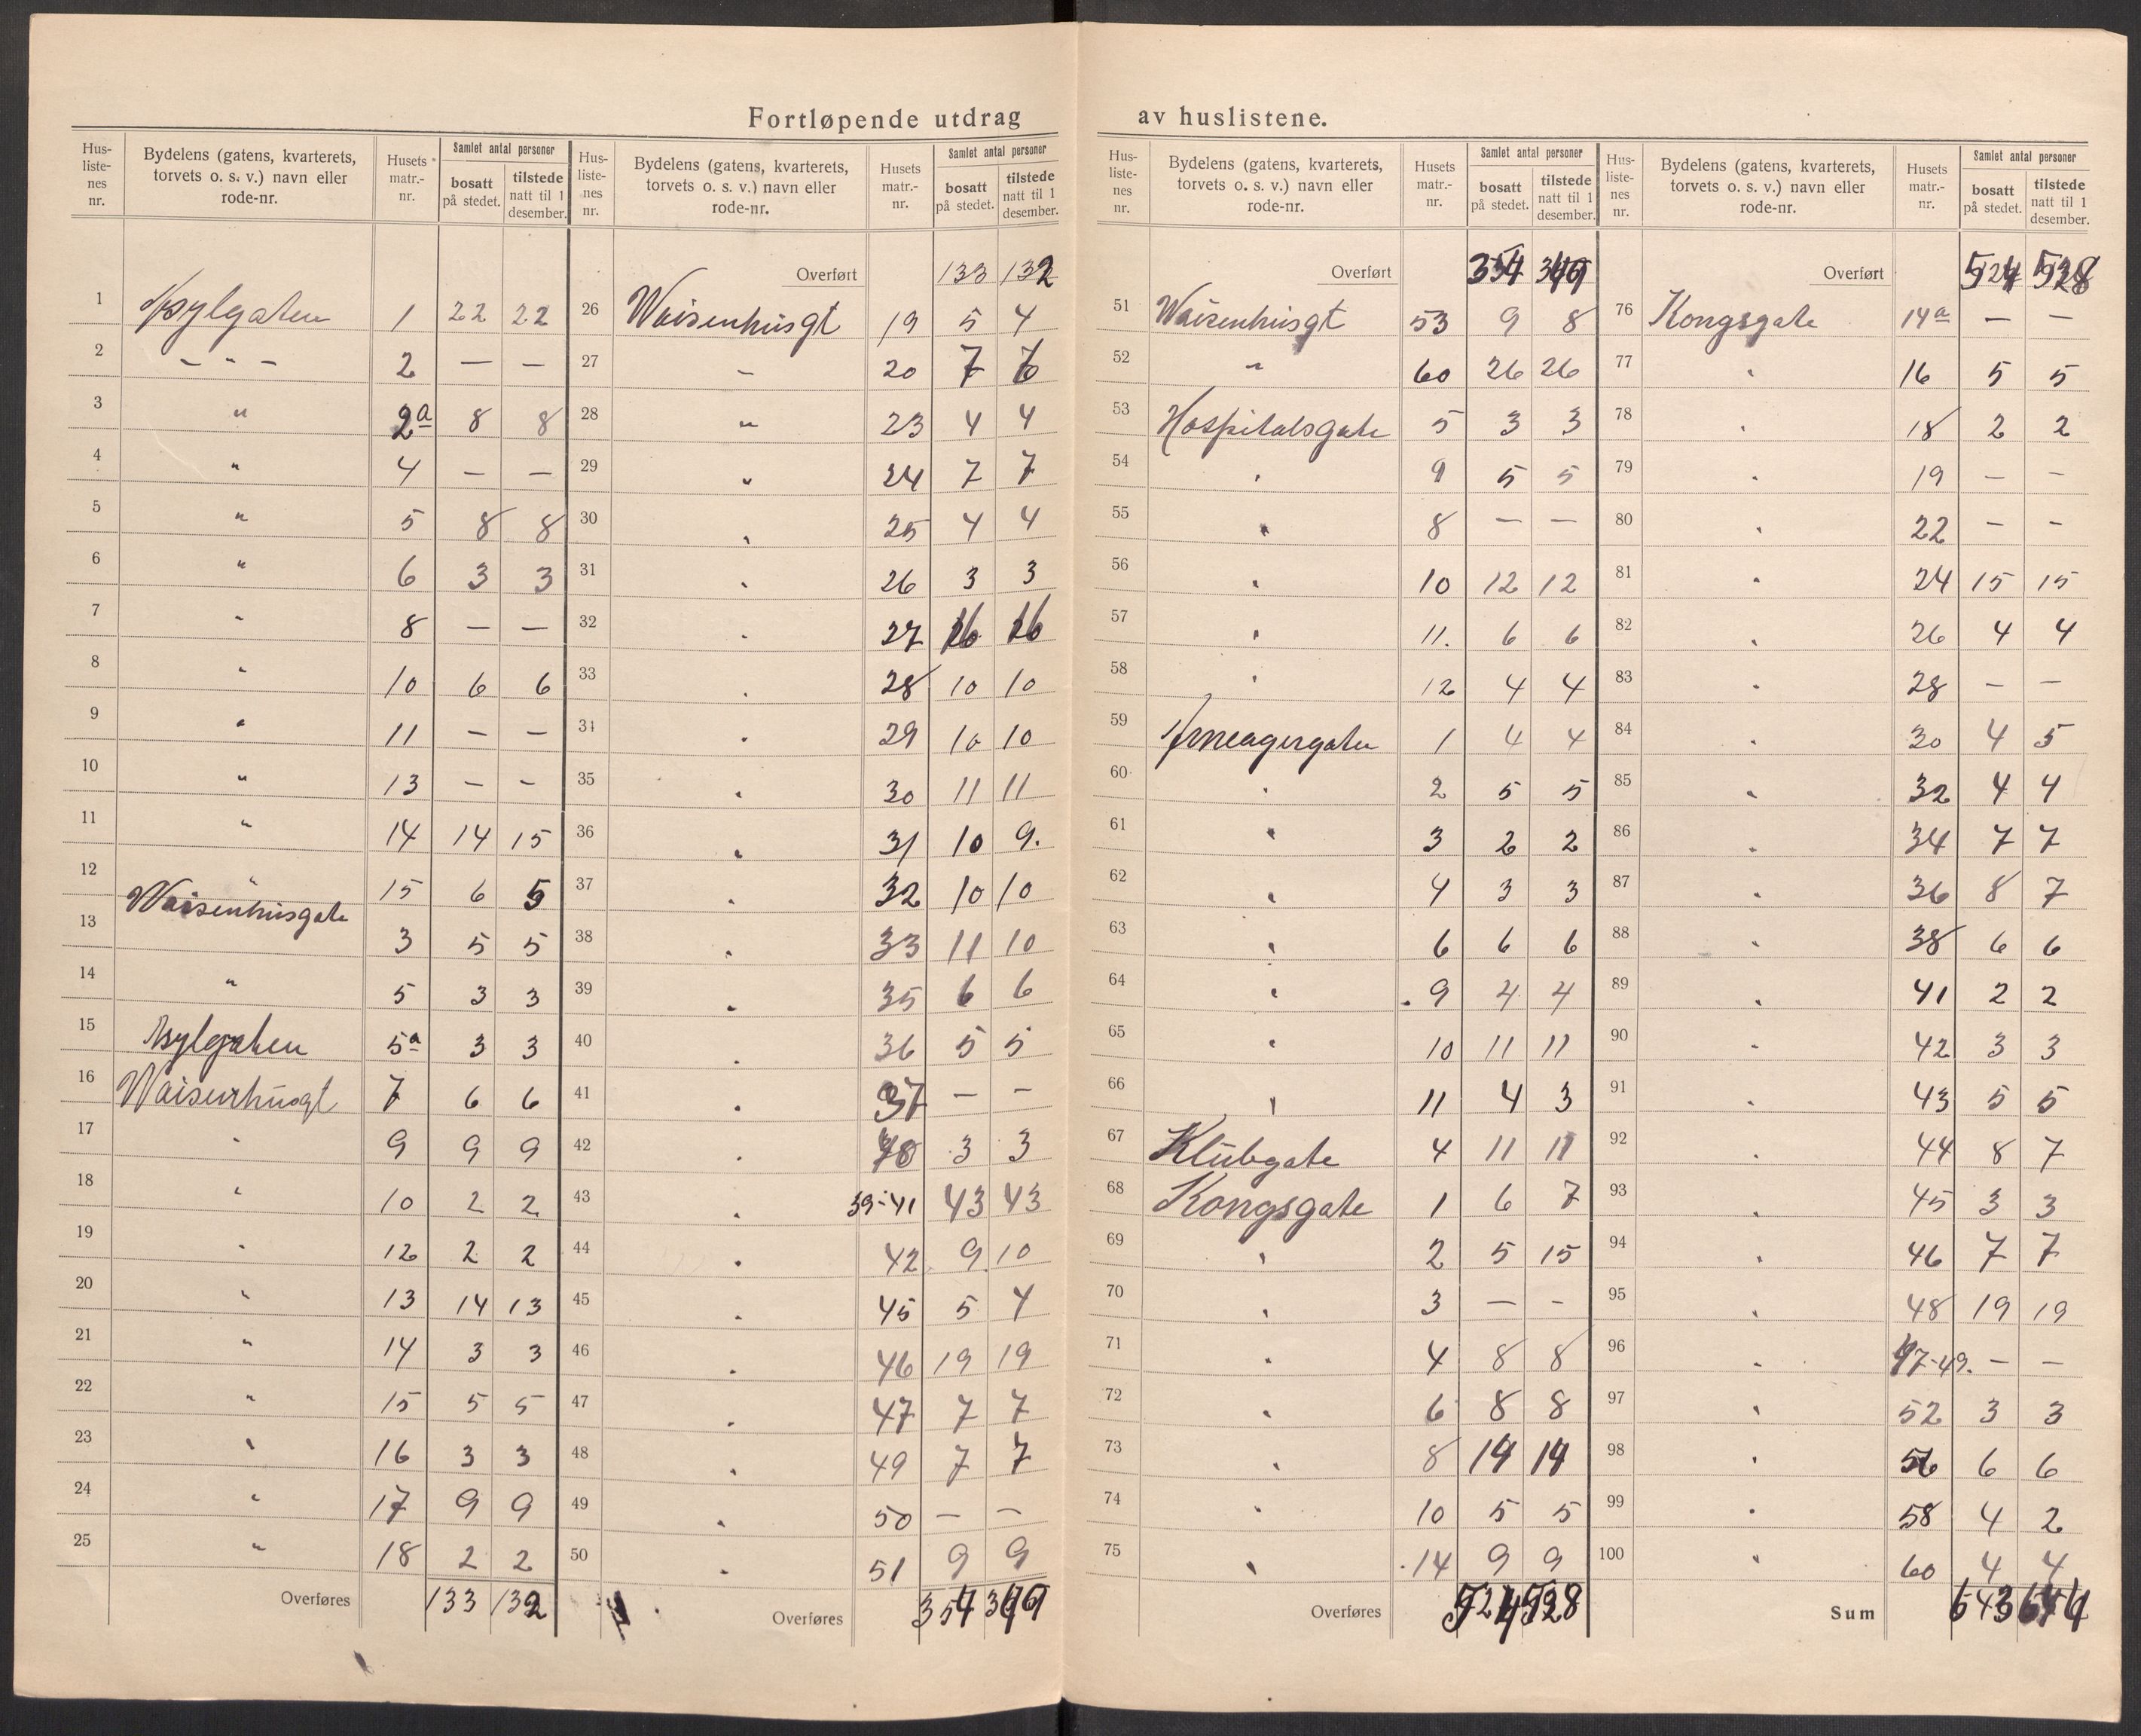 Fortløpende utdrag av huslistene.
Hus-liste-nes nr. | Bydelens (gatens, kvarterets, torvets o. s. v.) navn eller rode-nr. | Husets matr.-nr. | Samlet antal personer | bosatt på stedet. | tilstede natt til 1 desember.
1 Asylgaten 1 22 22
2 - " - 2 — —
3 " 2a 8 8
4 " 4 — —
5 " 5 8 8
6 " 6 3 3
7 " 8 — —
8 " 10 6 6
9 " 11 — —
10 " 13 — —
11 " 14 14 15
12 " 15 6 5
13 Waisenhusgate 3 5 5
14 " 5 3 3
15 Asylgaten 5a 3 3
16 Waisenhusgt 7 6 6
17 " 9 9 9
18 " 10 2 2
19 " 12 2 2
20 " 13 14 13
21 " 14 3 3
22 " 15 5 5
23 " 16 3 3
24 " 17 9 9
25 " 18 2 2
Overføres 133 132
Hus-liste-nes nr. | Bydelens (gatens, kvarterets, torvets o. s. v.) navn eller rode-nr. | Husets matr.-nr. | Samlet antal personer | bosatt på stedet. | tilstede natt til 1 desember.
Overført 133 132
26 Waisenhusgt 19 5 4
27 – 20 7 6
28 " 23 4 4
29 " 24 7 7
30 " 25 4 4
31 " 26 3 3
32 " 27 16 16
33 " 28 10 10
34 " 29 10 10
35 " 30 11 11
36 " 31 10 9.
37 " 32 10 10
38 " 33 11 10
39 " 35 6 6
40 " 36 5 5
41 " 37 — —
42 " 3 3
43 " 39-41 43 43
44 " 42 9 10
45 " 45 5 4
46 " 46 19 19
47 " 47 7 7
48 " 49 7 7
49 " 50 — —
50 " 51 9 9
Overføres 354
Hus-liste-nes nr. | Bydelens (gatens, kvarterets, torvets o. s. v.) navn eller rode-nr. | Husets matr.-nr. | Samlet antal personer | bosatt på stedet. | tilstede natt til 1 desember.
Overført 354
51 Waisenhusgt 53 9 8
52 " 60 26 26
53 Hospitalsgate 5 3 3
54 " 9 5 5
55 " 8 — —
56 " 10 12 12
57 " 11. 6 6
58 " 12 4 4
59 1 4 4
60 " 2 5 5
61 " 3 2 2
62 " 4 3 3
63 " 6 6 6
64 " 9 4 4
65 " 10 11 11
66 " 11 4 3
67 Klubgate 4 11 11
68 Kongsgate 1 6 7
69 " 2 5 15
70 " 3 — —
71 " 4 8 8
72 " 6 8 8
73 " 8 14 14
74 " 10 5 5
75 " 14 9 9
Overføres 524 528
Hus-liste-nes nr. | Bydelens (gatens, kvarterets, torvets o. s. v.) navn eller rode-nr. | Husets matr.-nr. | Samlet antal personer | bosatt på stedet. | tilstede natt til 1 desember.
Overført 524 528
76 Kongsgate 14a — —
77 " 16 5 5
78 " 18 2 2
79 " 19 — —
80 " 22 — —
81 " 24 15 15
82 " 26 4 4
83 " 28 — —
84 " 30 4 5
85 " 32 4 4
86 " 34 7 7
87 " 36 8 7
88 " 38 6 6
89 " 41 2 2
90 " 42 3 3
91 " 43 5 5
92 " 44 8 7
93 " 45 3 3
94 " 46 7 7
95 " 48 19 19
96 " 47-49. — —
97 " 52 3 3
98 " 56 6 6
99 " 58 4 2
100 " 60 4 4
Sum 643